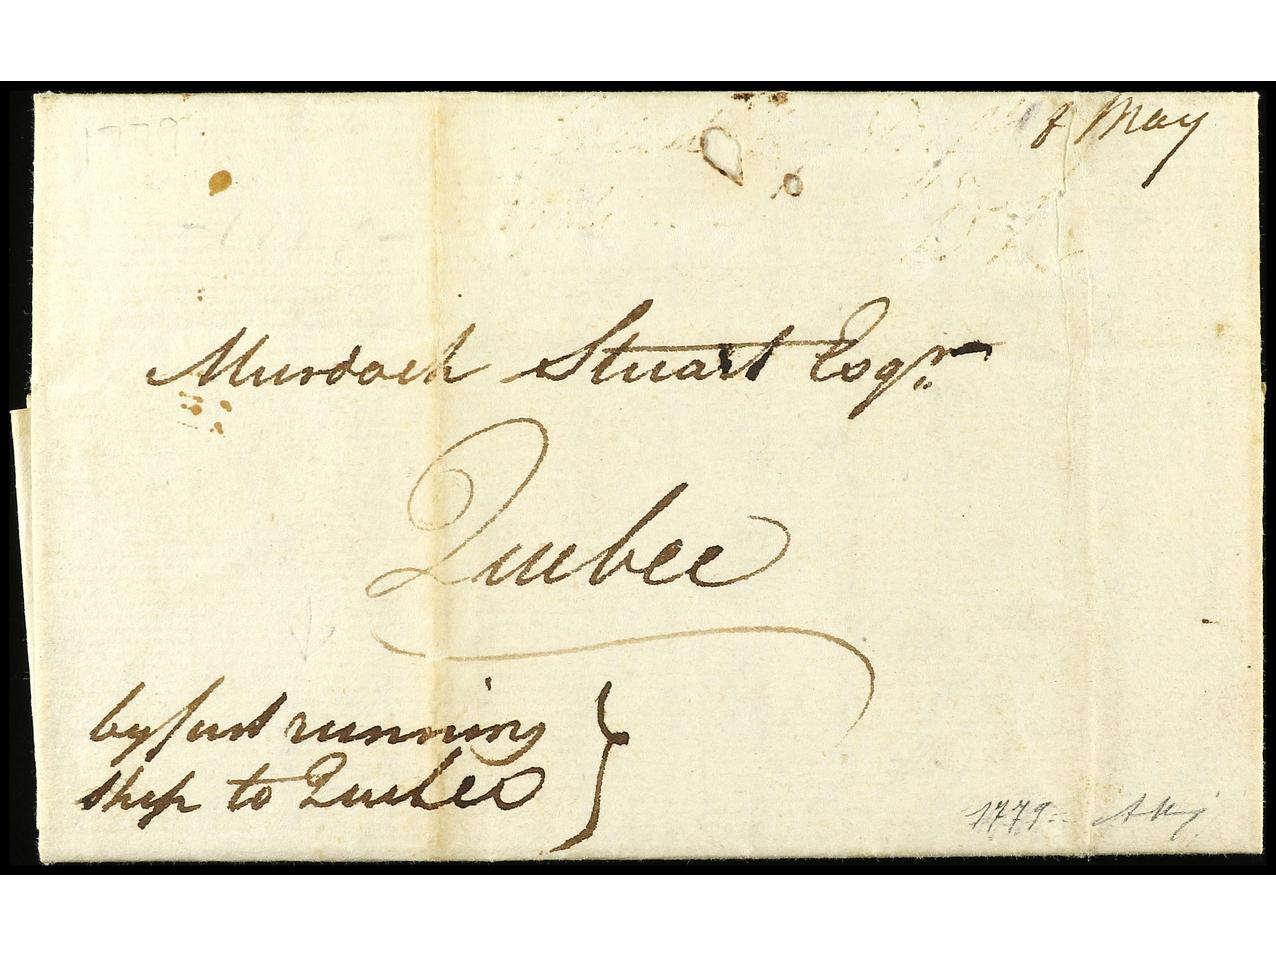 1779
8 May
Murdoch Stuart Esqr.
Quebec
by first running
ship to Quebec
1779 =